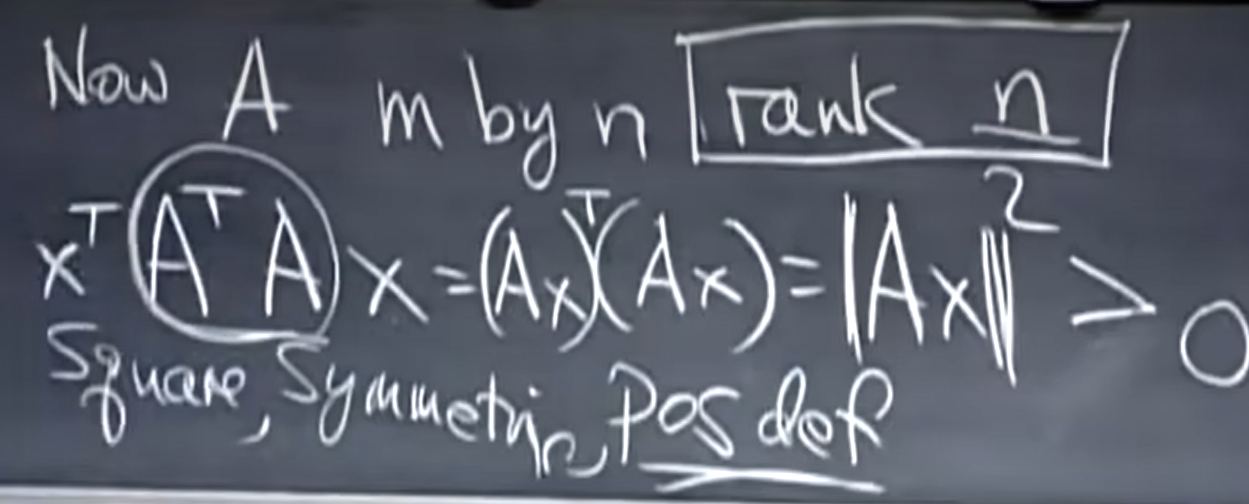 Now A m by n rank n
xᵀAᵀAx = (Ax)ᵀ(Ax) = ‖Ax‖² > 0
Square, Symmetric, Pos def